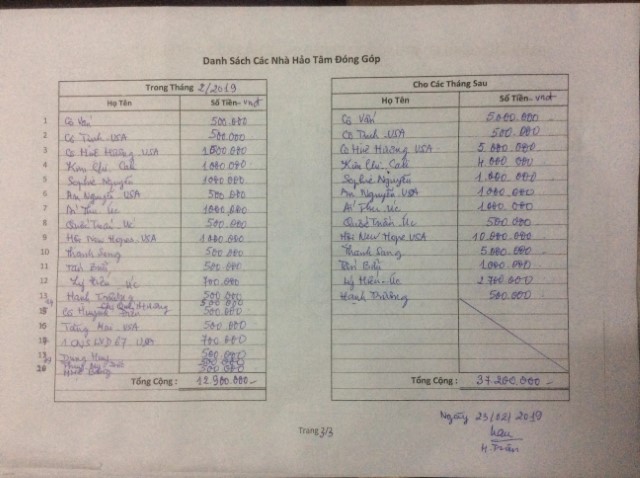 Danh Sách Các Nhà Hảo Tâm Đóng Góp
Trong Tháng 2/2019
Họ Tên Số Tiền - vnđ
1 Cô Vấn 500.000
2 Cô Trinh USA 500.000
3 Cô Huê Hương USA 1500.000
4 Kim Chi. Cali 1.000.000
5 Sophie Nguyễn 1000.000
6 An Nguyễn USA 500.000
7 Ái Thu Úc 1000.000
8 Úc 500.000
9 Hội New Hope. USA 1.000.000
10 Thanh Sang 500.000
11 500.000
12 Úc 700.000
13 Hạnh Trương 500.000
Hương 500.000
15 Cô Huỳnh 500.000
16 USA 500.000
USA 700.000
500.000
Tổng Cộng : 12.900.000 -
Cho Các Tháng Sau
Họ Tên Số Tiền - vnđ
Cô Vấn 5000.000
Cô Trinh USA 500.000
Cô Huê Hương USA 5.000.000
Kim Chi. Cali 4.000.000
Sophie Nguyễn 1.000.000
An Nguyễn USA 1000.000
Ái Thu Úc 1.000.000
Úc 500.000
Hội New Hope USA 10.000.000
Thanh Sang 5.000.000
1.000.000
Úc 2.700.000
Hạnh Trương 500.000
Tổng Cộng : 37.200.000 -
Ngày 23/02/2019
H. Trần
Trang 3/3